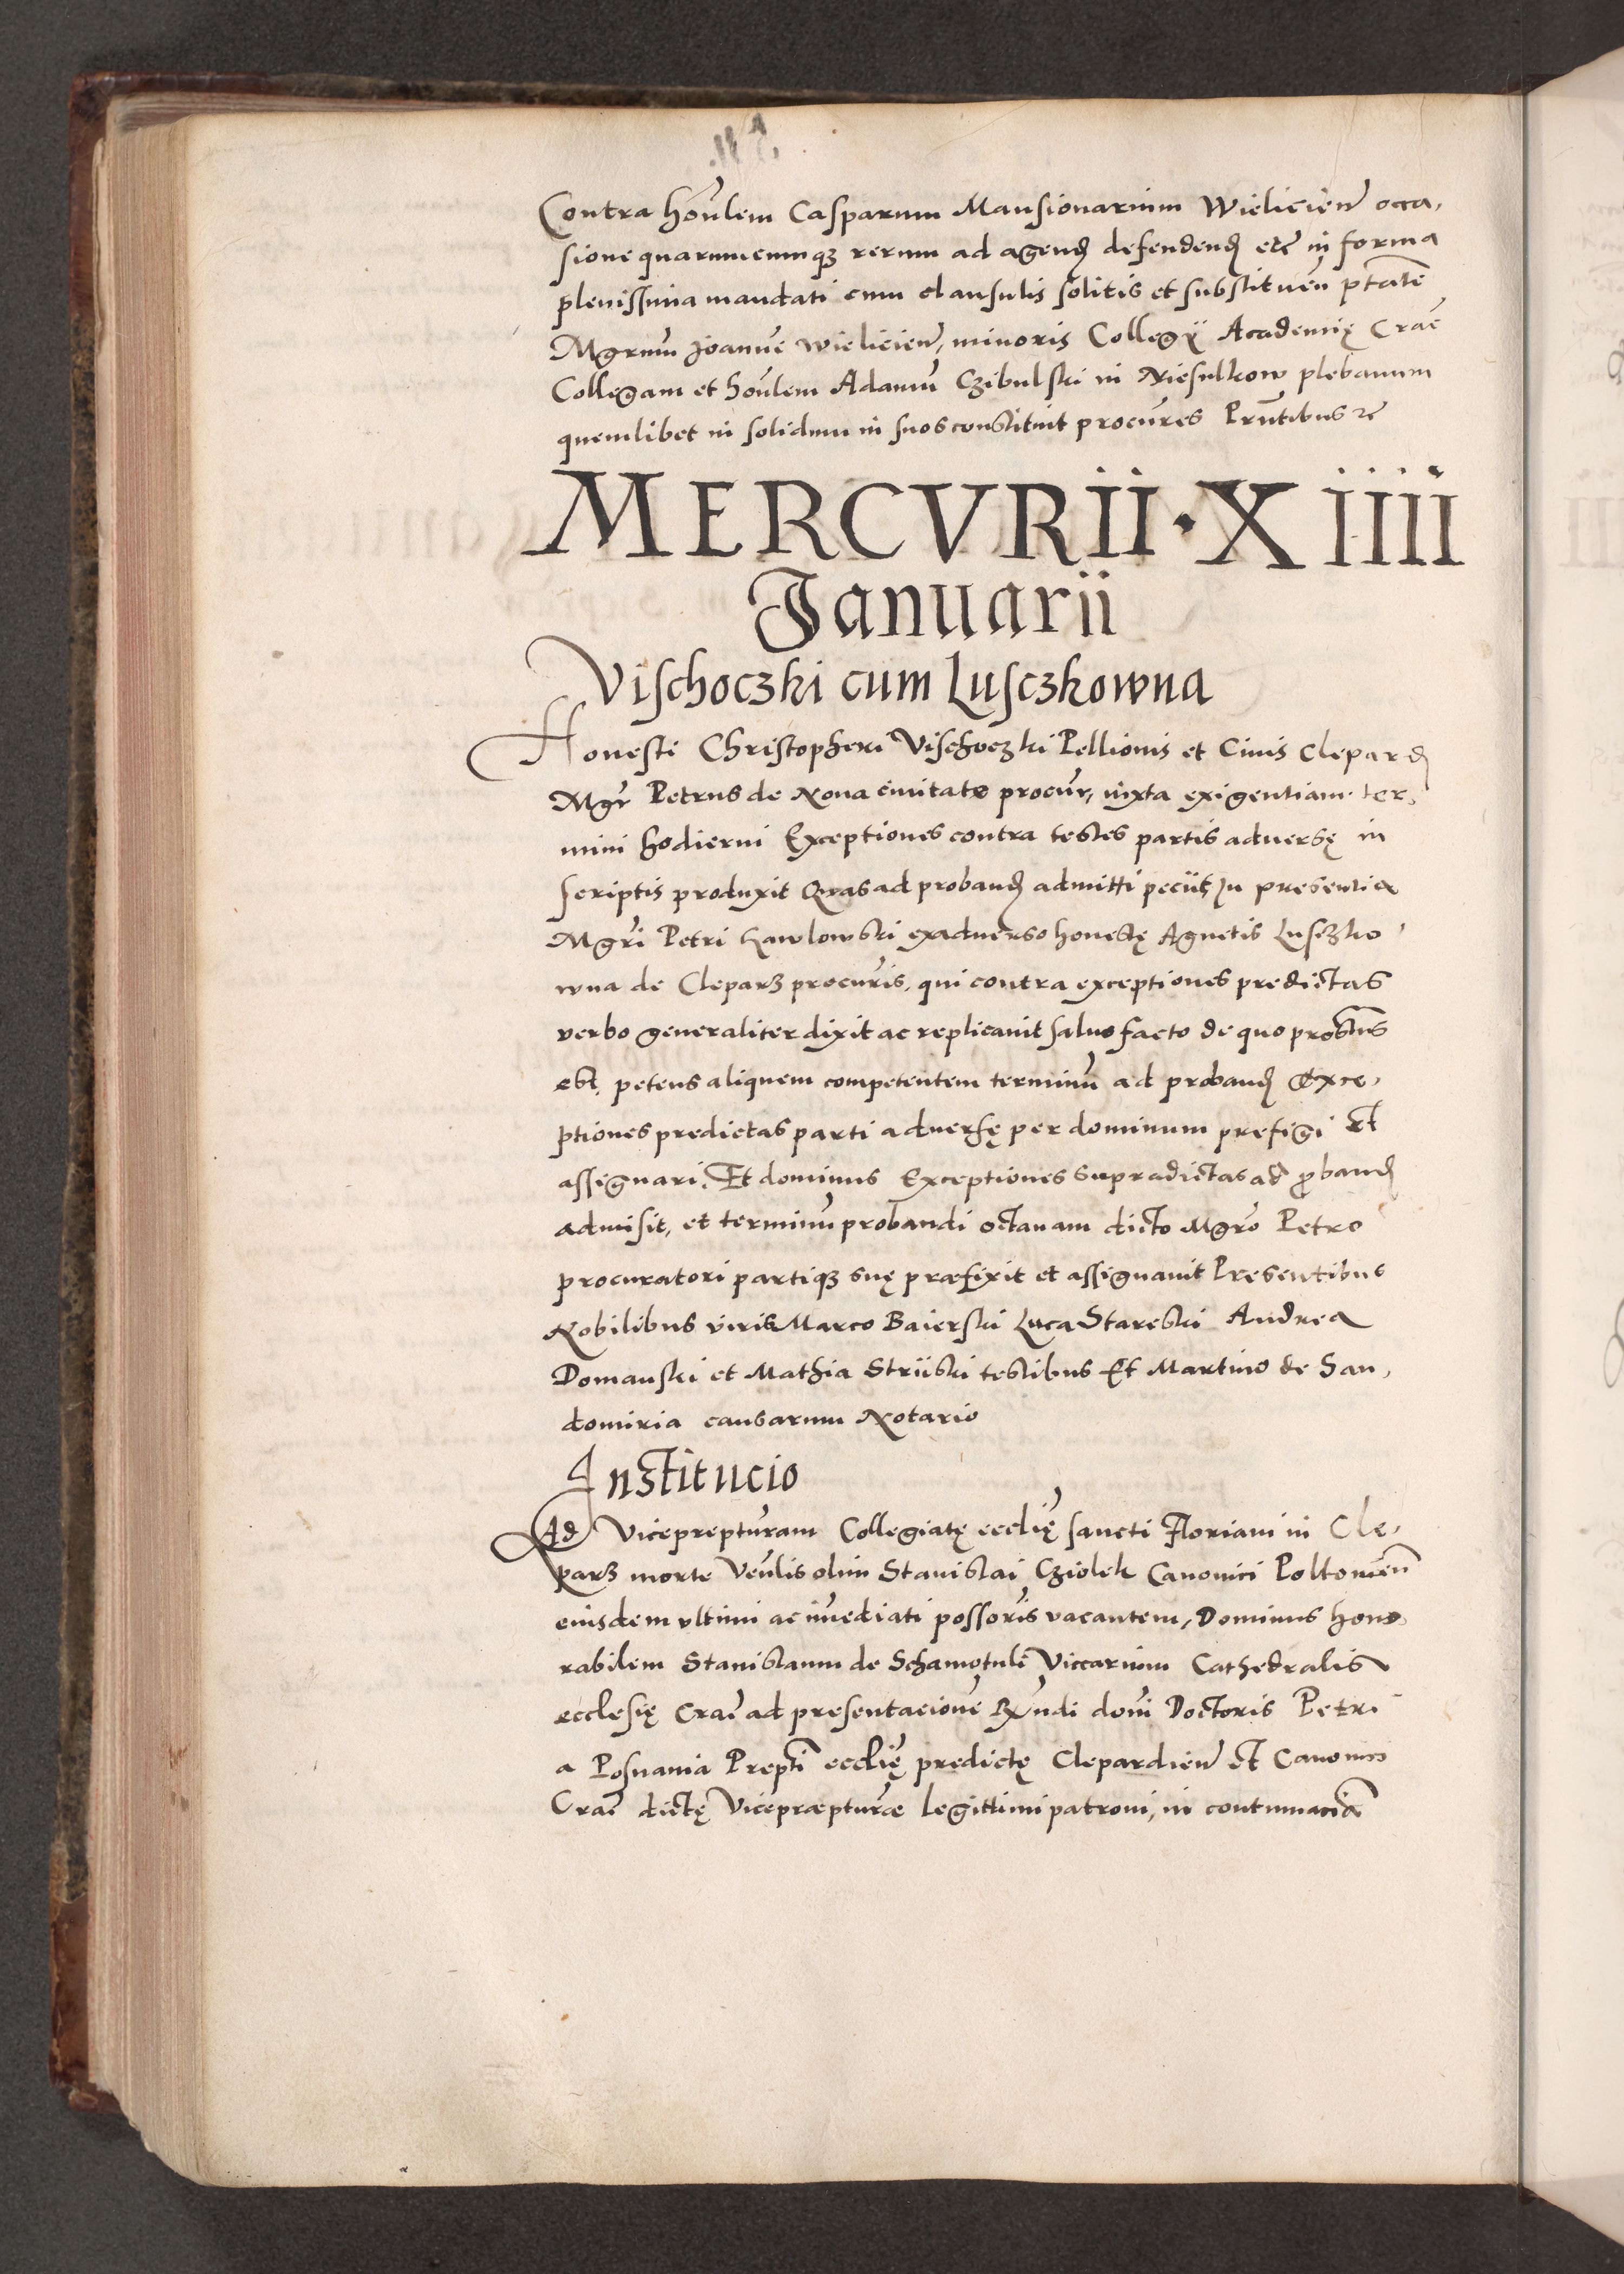 Contra hon̄lem Casparum Mansionarium Wielicien̄ occa,
sione quarumcumqꝫ rerum ad agend̨ defendend̨ etc̄ in forma
plenissima mandati cum clausulis solitis et substituen̄ ptātē
Mgrum̄ Joannē Wielicien̄, minoris Collegÿ Academię Crac̄
Collegam et hon̄lem Adamū Czibulski in Niesulkow plebanum
quemlibet in solidum in suos constituit procūres Prn̄tibus ꝛc̄
MERCVRII · XIIII
Januarii
Vischoczki cum Lusczkowna
Honesti Christopheri Vischoczki Pellionis et Ciuis Clepard̨
Mgr̄ Petrus de Noua ciuitate procūr, iuxta exigentiam ter,
mini hodierni Exceptiones contra testes partis aduersę in
scriptis produxit Quas ad proband̨ admitti peciit, In presentia
Mgr̄i Petri Kawlowski exaduerso honestę Agnetis Lusczko,
wna de Cleparꝫ procūris, qui contra exceptiones predictas
verbo generaliter dixit ac replicauit saluo facto de quo prostn̄s
est. petens aliquem competentem terminū ad proband̨ Exce,
ptiones predictas parti aduersę per dominum prefigi et
assignari. Et dominus Exceptiones supradictas ad ꝓband̨
admisit, et terminū probandi octauam dicto Mgr̄o Petro
procuratori partiqꝫ suę præfixit et assignauit Presentibus
Nobilibus viris Marco Baierski Luca Stareski Andrea
Domanski et Mathia Striiski testibus Et Martino de San,
domiria causarum Notario
Institucio
Ad Vicepreptūram Collegiatę ecclię̄ sancti Floriani in Cle,
parꝫ morte Ven̄lis olim Stanislai Cziolek Canonici Poltouien̄
eiusdem vltimi ac im̄ediati possor̄is vacantem, Dominus hono,
rabilem Stanislaum de Schamotuli Viccarium Cathedralis
ecclesię Crac̄ ad presentacionē Rn̄di dom̄i Doctoris Petri
a Posnania Preptī ecclię̄ predictę Clepardien̄ et Canonici
Crac̄ dictę Vicepræptūræ legittimi patroni, in contumaciā